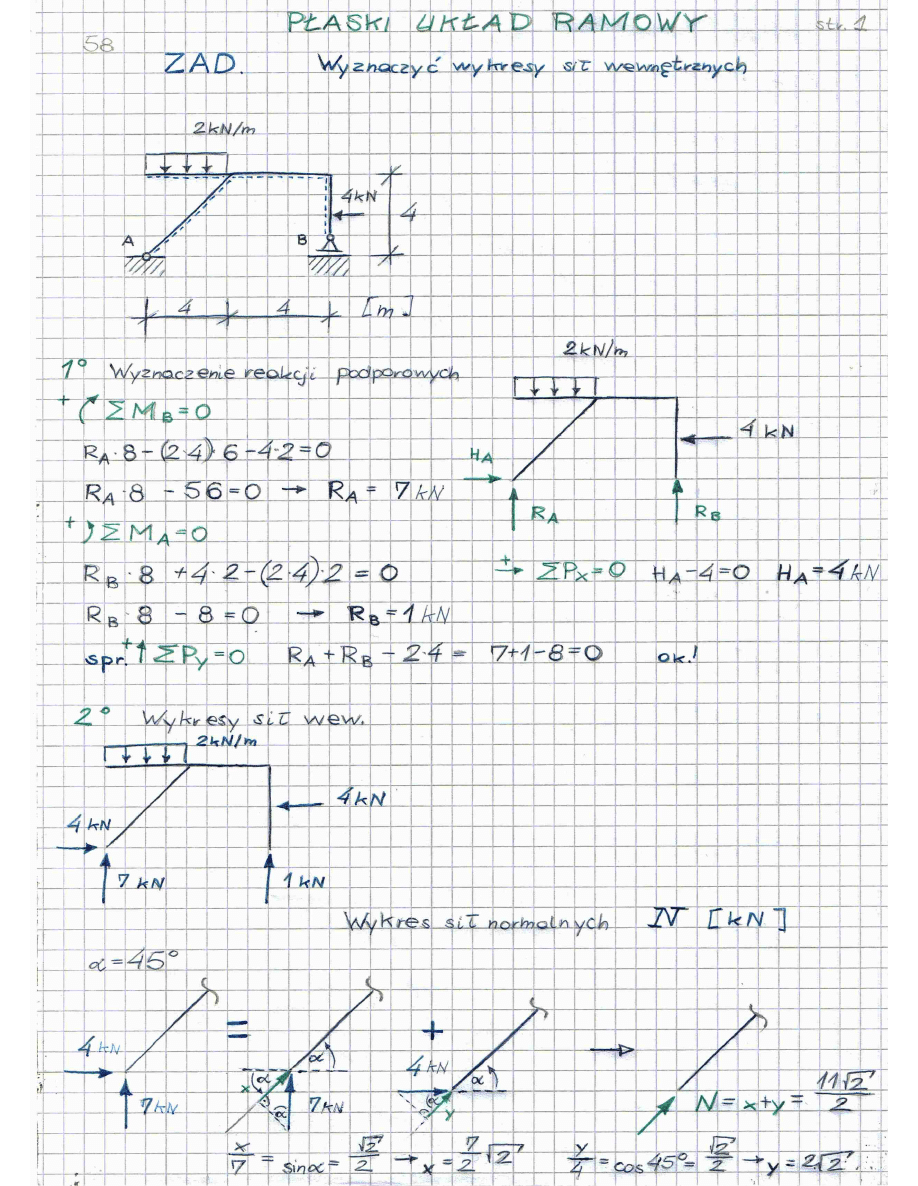 PŁASKI UKŁAD RAMOWY
str. 1
58
ZAD. Wyznaczyć wykresy sił wewnętrznych
2kN/m
4kN
4
A
B
4 4 [m]
2kN/m
1° Wyznaczenie reakcji podporowych
+ ΣM_B=0
4 kN
R_A·8-(2·4)·6-4·2=0
H_A
R_A·8 -56=0 → R_A = 7kN
R_A
R_B
+ ΣM_A=0
R_B·8 +4·2-(2·4)·2 = 0
+→ ΣP_x=0 H_A-4=0 H_A=4kN
R_B·8 -8=0 → R_B=1kN
spr. +↑ΣP_y=0 R_A+R_B-2·4= 7+1-8=0 ok!
2° Wykresy sił wew.
2kN/m
4kN
4 kN
7 kN
1 kN
Wykres sił normalnych N [kN]
α=45°
= + →
4 kN
7kN
x α α α 7kN
4 kN α α y
N=x+y= 11√2/2
x/7 = sinα= √2/2 → x= 7/2 √2
y/4 = cos45°= √2/2 → y=2√2